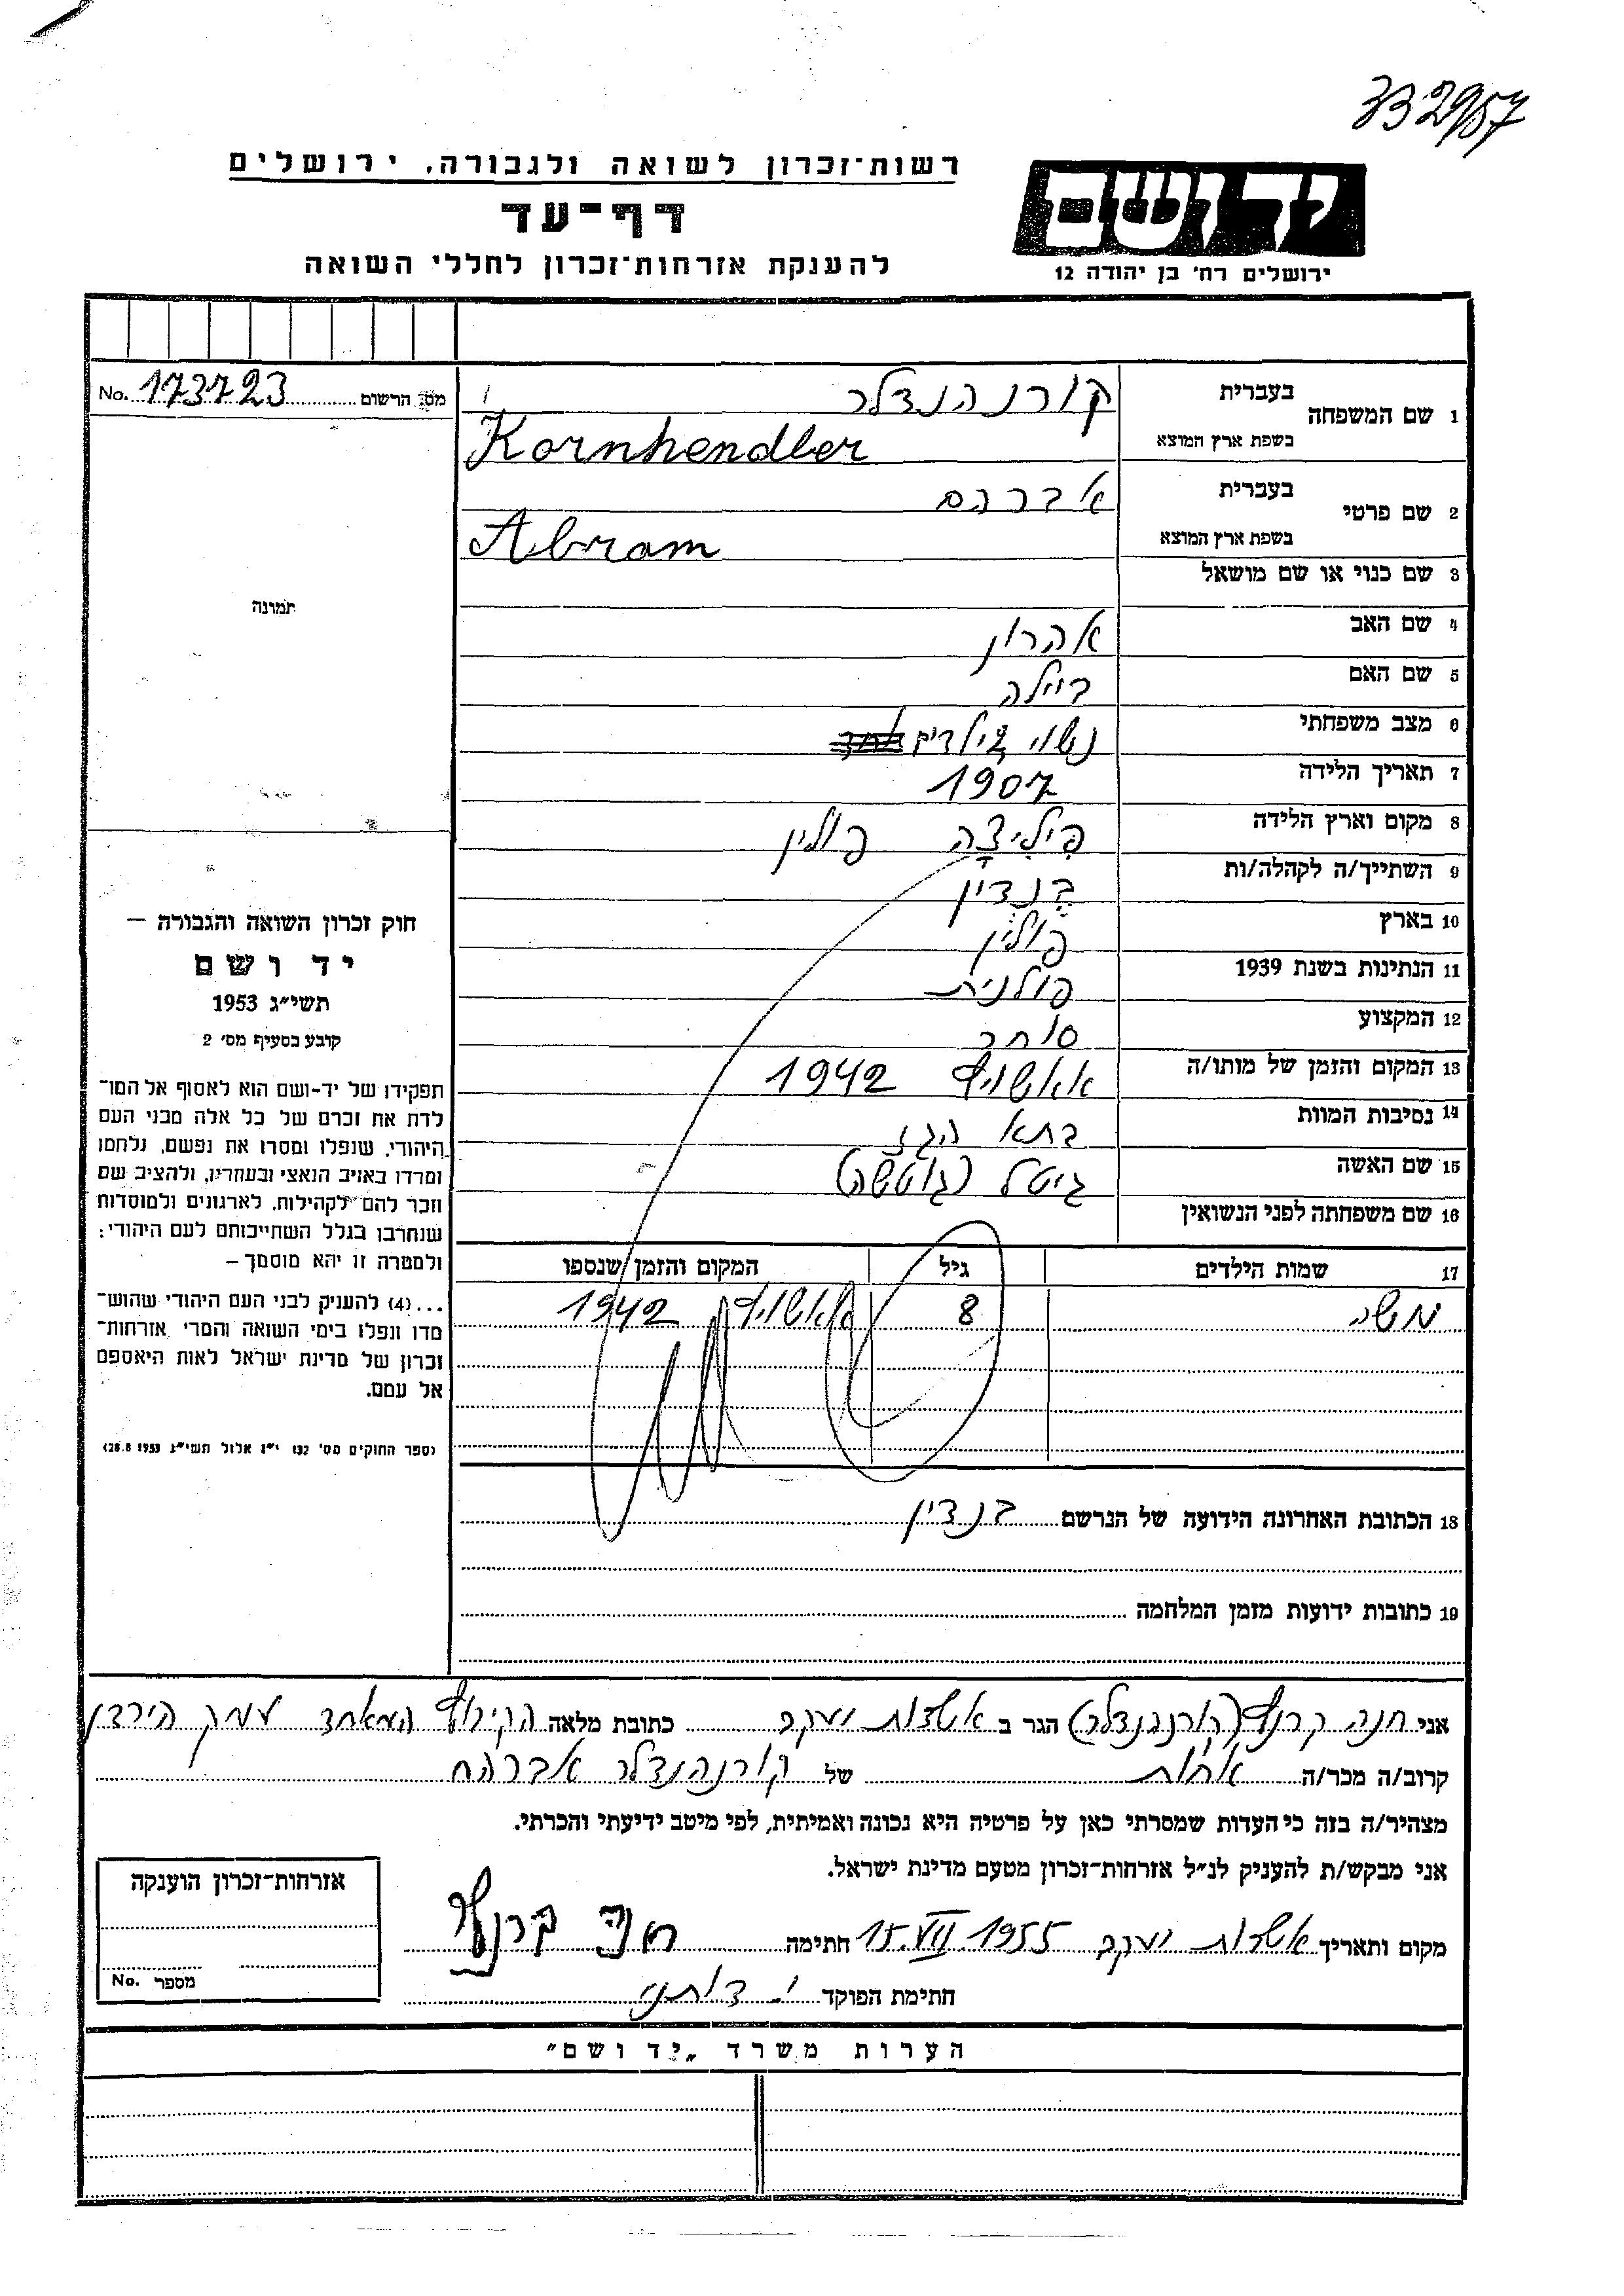 332957
רשות־זכרון לשואה ולגבורה, ירושלים
דף־עד
להענקת אזרחות־זכרון לחללי השואה
יד ושם
ירושלים רח׳ בן יהודה 12
מס. הרשום 173723 No.
1 שם המשפחה
בעברית קורנהנדלר
בשפת ארץ המוצא Kornhendler
2 שם פרטי
בעברית אברהם
בשפת ארץ המוצא Abram
3 שם כנוי או שם מושאל
4 שם האב אהרון
5 שם האם ביילה
6 מצב משפחתי נשוי
7 תאריך הלידה 1907
8 מקום וארץ הלידה פיליצה פולין
9 השתייך/ה לקהלה/ות בנדין
10 בארץ פולין
11 הנתינות בשנת 1939 פולנית
12 המקצוע סוחר
13 המקום והזמן של מותו/ה אאושויץ 1942
14 נסיבות המוות בתא הגז
15 שם האשה גיטל (גוטשה)
16 שם משפחתה לפני הנשואין
17 שמות הילדים גיל המקום והזמן שנספו
משה 8 אאושויץ 1942
18 הכתובת האחרונה הידועה של הנרשם בנדין
19 כתובות ידועות מזמן המלחמה
תמונה
חוק זכרון השואה והגבורה —
יד ושם
תשי״ג 1953
קובע בסעיף מס׳ 2
תפקידו של יד־ושם הוא לאסוף אל המו־
לדת את זכרם של כל אלה מבני העם
היהודי, שנפלו ומסרו את נפשם, נלחמו
ומרדו באויב הנאצי ובעוזריו, ולהציב שם
וזכר להם לקהילות, לארגונים ולמוסדות
שנחרבו בגלל השתייכותם לעם היהודי;
ולמטרה זו יהא מוסמך —
...(4) להעניק לבני העם היהודי שהוש־
מדו ונפלו בימי השואה והמרי אזרחות־
זכרון של מדינת ישראל לאות היאספם
אל עמם.
(ספר החוקים מס׳ 132 י״ז אלול תשי״ג 28.8.1953)
אני חנה (קורנהנדלר) הגר ב אשדות יעקב כתובת מלאה הקיבוץ המאוחד עמק הירדן
קרוב/ה מכר/ה אחות של קורנהנדלר אברהם
מצהיר/ה בזה כי העדות שמסרתי כאן על פרטיה היא נכונה ואמיתית, לפי מיטב ידיעתי והכרתי.
אני מבקש/ת להעניק לנ״ל אזרחות־זכרון מטעם מדינת ישראל.
מקום ותאריך אשדות יעקב 15.VII.1955 חתימה חנה
חתימת הפוקד
אזרחות־זכרון הוענקה
מספר No.
הערות משרד „יד ושם״